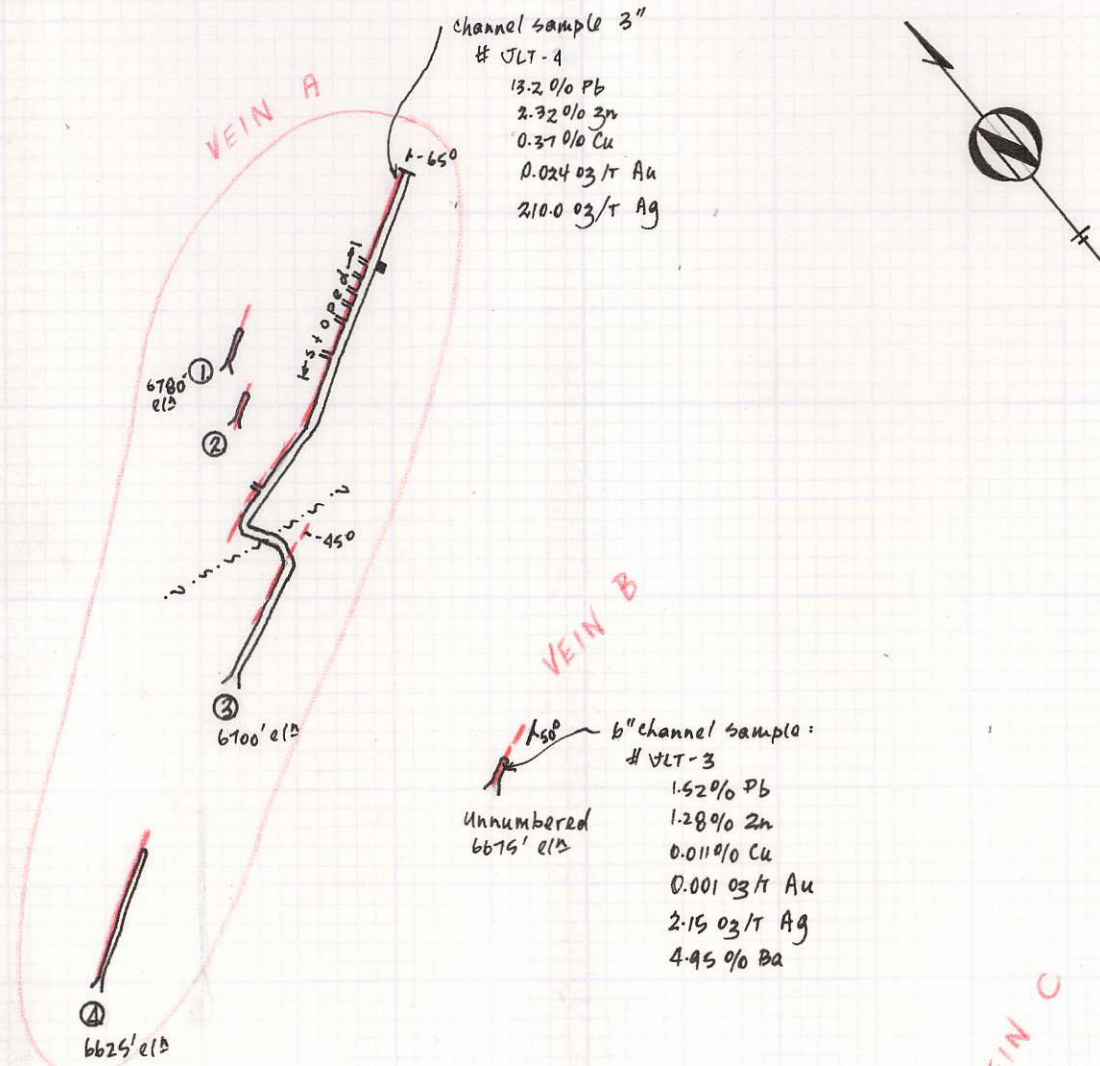 channel sample 3"
# JLT-4
13.2 % Pb
2.32 % Zn
0.37 % Cu
0.024 oz/T Au
210.0 oz/T Ag
VEIN A
65°
stoped
N
①
6780'
eln
②
?
45°
?
③
6700' eln
VEIN B
50°
6" channel sample:
# JLT-3
1.52% Pb
1.28% Zn
0.011% Cu
0.001 oz/T Au
2.15 oz/T Ag
4.95 % Ba
Unnumbered
6675' eln
④
6625' eln
EIN C